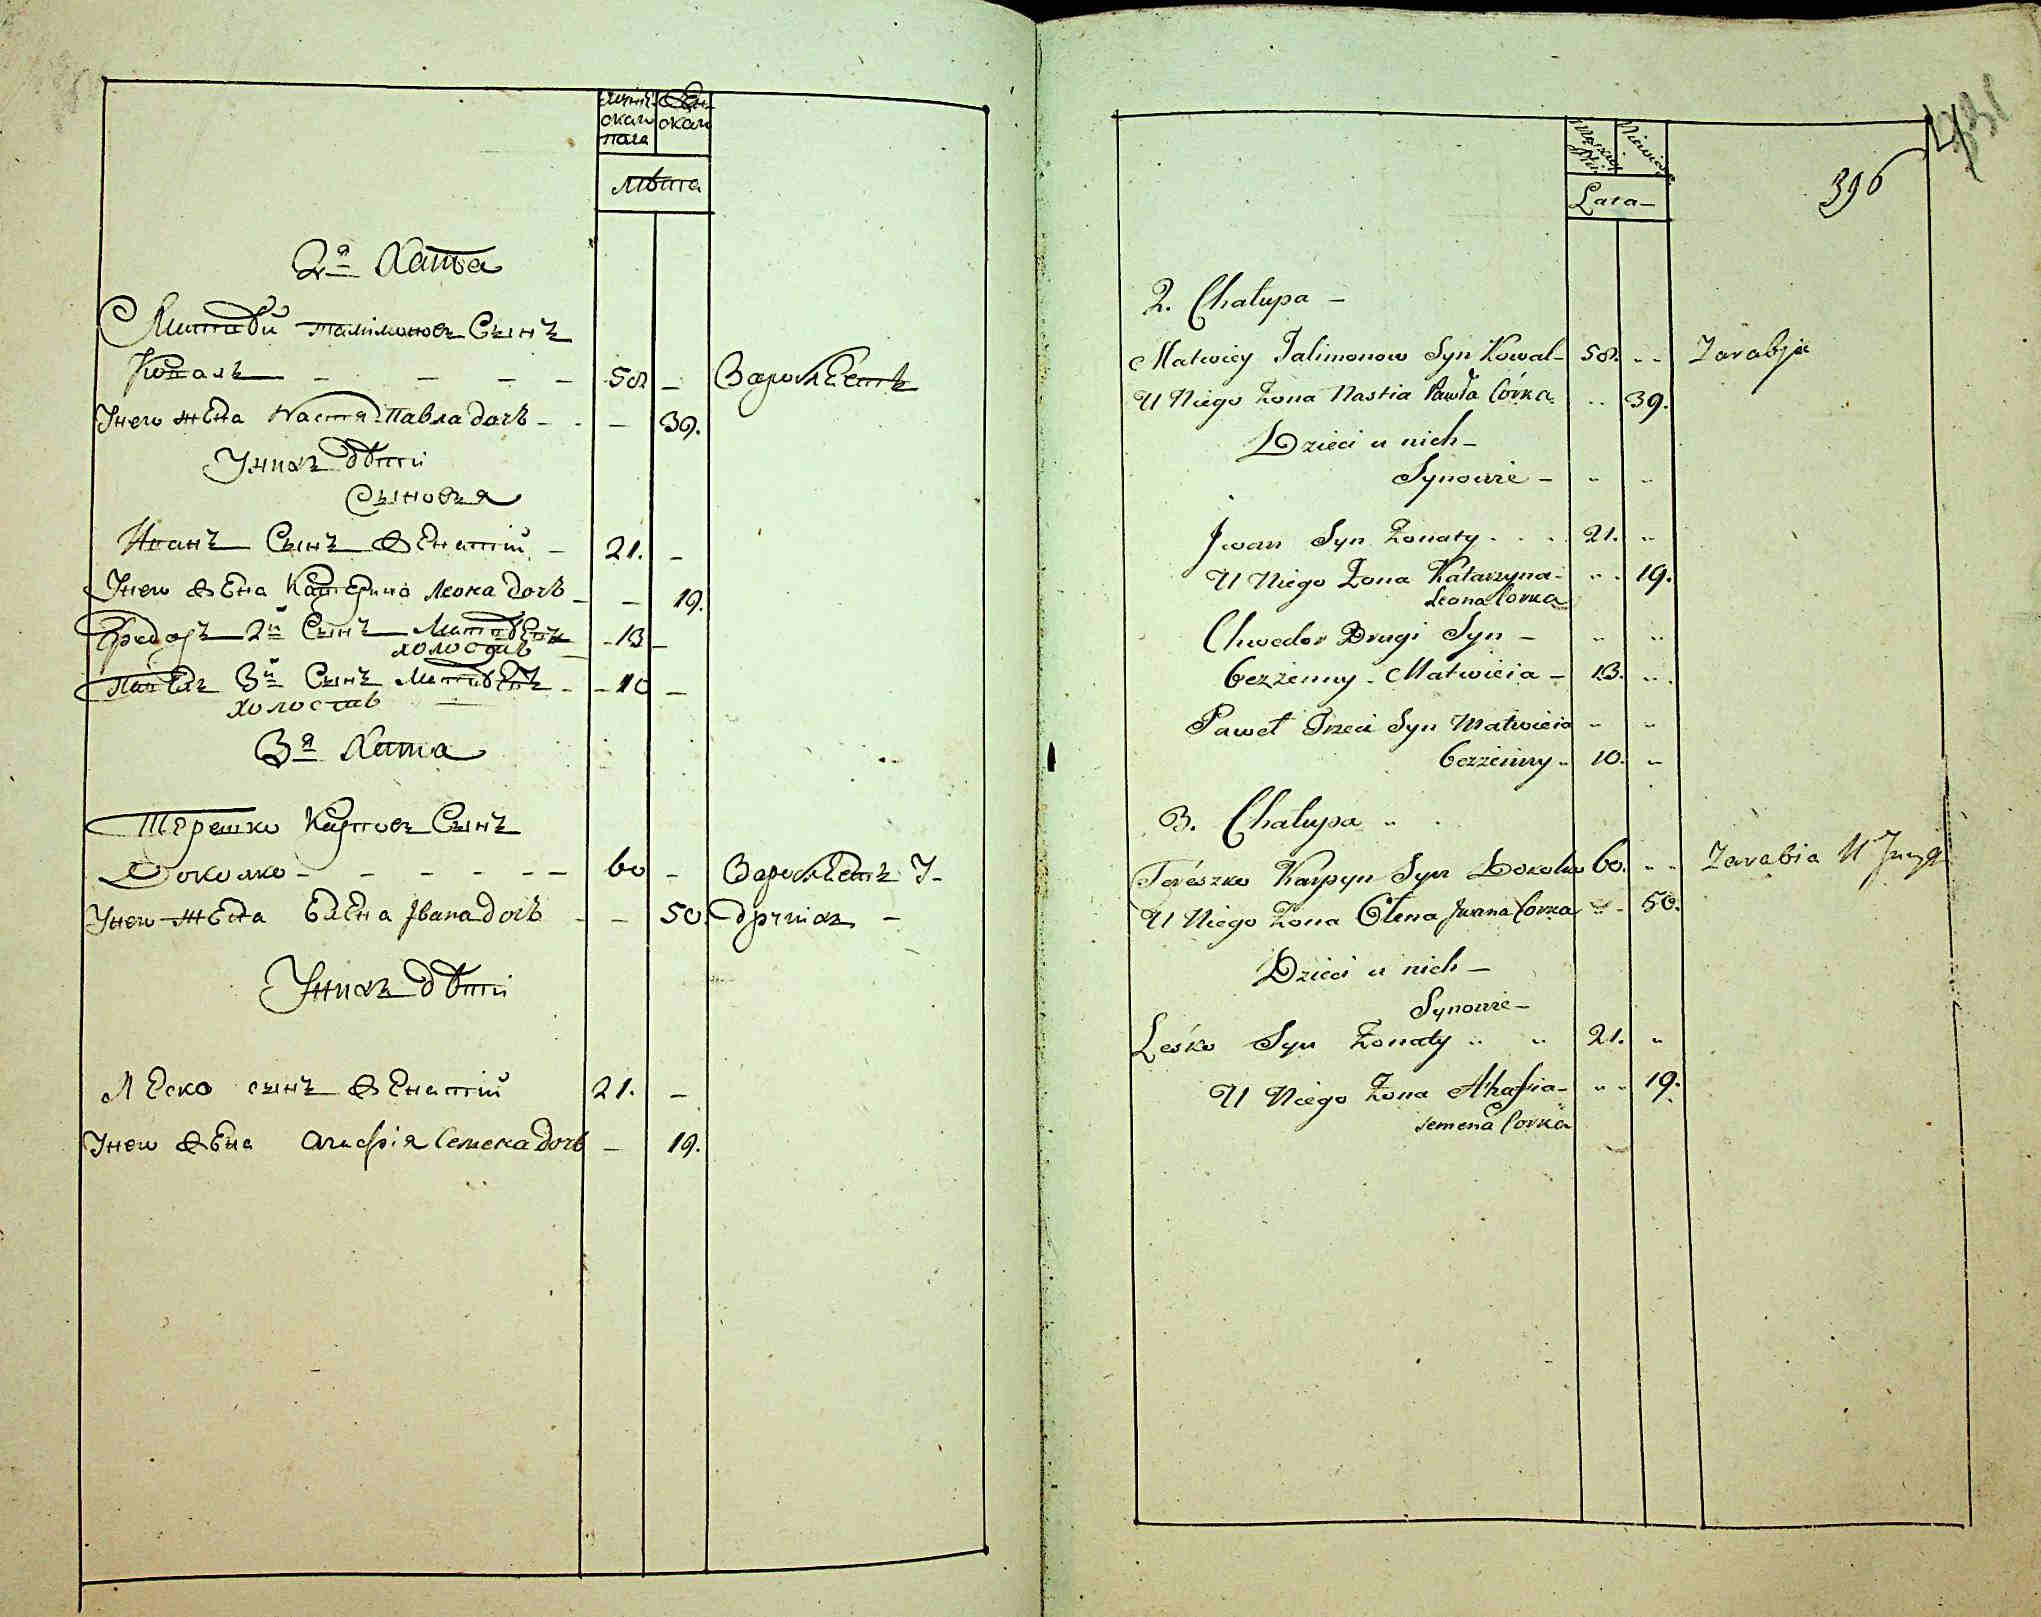 мужскаго пола
женскаго
лѣта
2я Хата
Матвѣй Талимоновъ Сынъ
Коваль 50 Зароблѣетъ
Унего жена Настя Павла дочь 39.
Унихъ дѣти
Сыновья
Иванъ Сынъ женатій 21.
Унего жена Катерина Леона дочь 19.
Федоръ 2й Сынъ Матвѣевъ 13
холоставъ
Павелъ 3й Сынъ Матвѣевъ 10
холоставъ
3я Хата
Терешко Карповъ Сынъ
Доколко 60 Зароблѣетъ У
Унего жена Елена Ивана дочь 50. другихъ
Унихъ дѣти
Леско сынъ женатій 21.
Унего жена Семена дочь 19.
396
Lata
2. Chałupa
Matwiey Talimonow Syn Kowal 50. Zarabja
U Niego Żona Nastia Pawła Córka 39.
Dzieci u nich
Synowie
Jwan Syn Żonaty 21.
U Niego Żona Katarzyna 19.
Leona Corka
Chwedor Drugi Syn
bezżenny Matwieia 13.
Paweł Trzeci Syn Matwieia
bezżenny 10.
3. Chałupa
Tereszko Karpyn Syn Dokolko 60. Zarabia U
U Niego Żona Ołena Jwana Corka 50.
Dzieci u nich
Synowie
Leśko Syn Żonaty 21.
U Niego Żona Ahafia 19.
Semena Corka